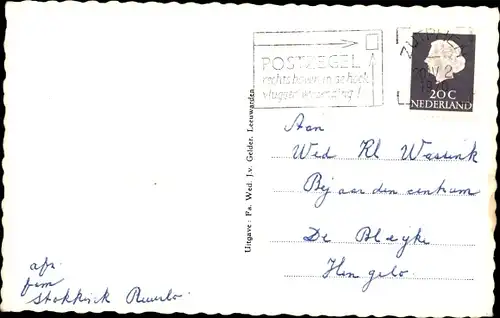 POSTZEGEL
rechtsboven in de hoek
vlugger verzending!
ZUTPHEN
2
20 C
NEDERLAND
Uitgave: Fa. Wed. J. v. Gelder, Leeuwarden
Aan
Wed Kl Wassink
Bejaarden centrum
De Bleijke
Hengelo
afz.
fam
Stokkink Ruurlo